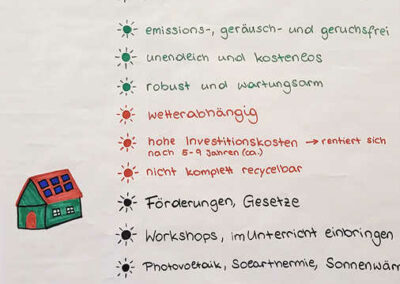 emissions-, geräusch- und geruchsfrei
unendlich und kostenlos
robust und wartungsarm
wetterabhängig
hohe Investitionskosten → rentiert sich
nach 5-9 Jahren (ca.)
nicht komplett recycelbar
Förderungen, Gesetze
Workshops, im Unterricht einbringen
Photovoltaik, Solarthermie, Sonnenwär